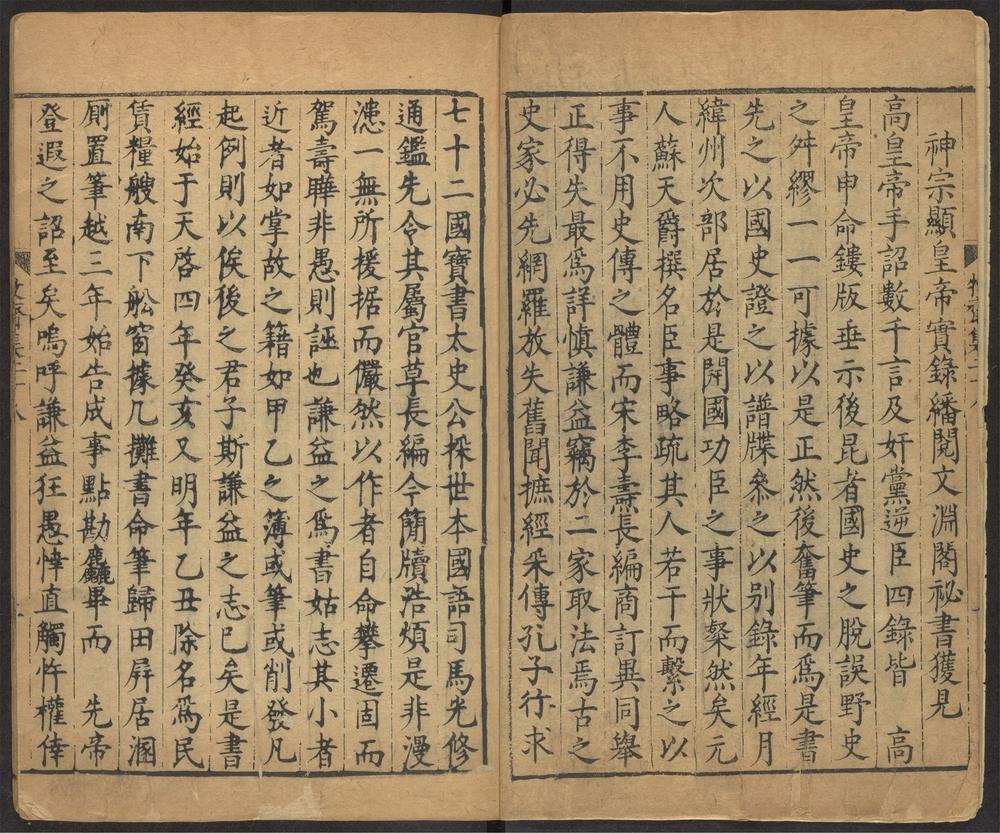 神宗顯皇帝實錄繙閱文淵閣祕書獲見
高皇帝手詔數千言及奸黨逆臣四錄皆　高
皇帝申命鏤版垂示後昆者國史之脫誤野史
之舛繆一一可據以是正然後奮筆而爲是書
先之以國史證之以譜牒叅之以別錄年經月
緯州次部居於是開國功臣之事狀粲然矣元
人蘇天爵撰名臣事略疏其人若干而繫之以
事不用史傳之體而宋李燾長編商訂異同舉
正得失最爲詳慎謙益竊於二家取法焉古之
史家必先網羅放失舊聞摭經采傳孔子行求
七十二國寶書太史公採世本國語司馬光修
通鑑先令其屬官草長編今簡牘浩煩是非漫
漶一無所援据而儼然以作者自命攀遷固而
駕壽曄非愚則誣也謙益之爲書姑志其小者
近者如掌故之籍如甲乙之簿或筆或削發凡
起例則以俟後之君子斯謙益之志已矣是書
經始于天啓四年癸亥又明年乙丑除名爲民
賃糧艘南下舩窗據几攤書命筆歸田屛居溷
厠置筆越三年始告成事點勘麤畢而　先帝
登遐之詔至矣嗚呼謙益狂愚悻直觸忤權倖
牧齋集二十八